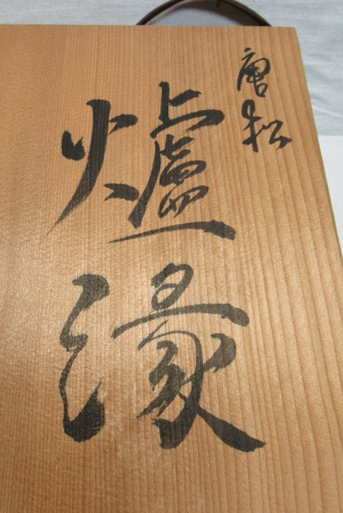 唐松
爐縁